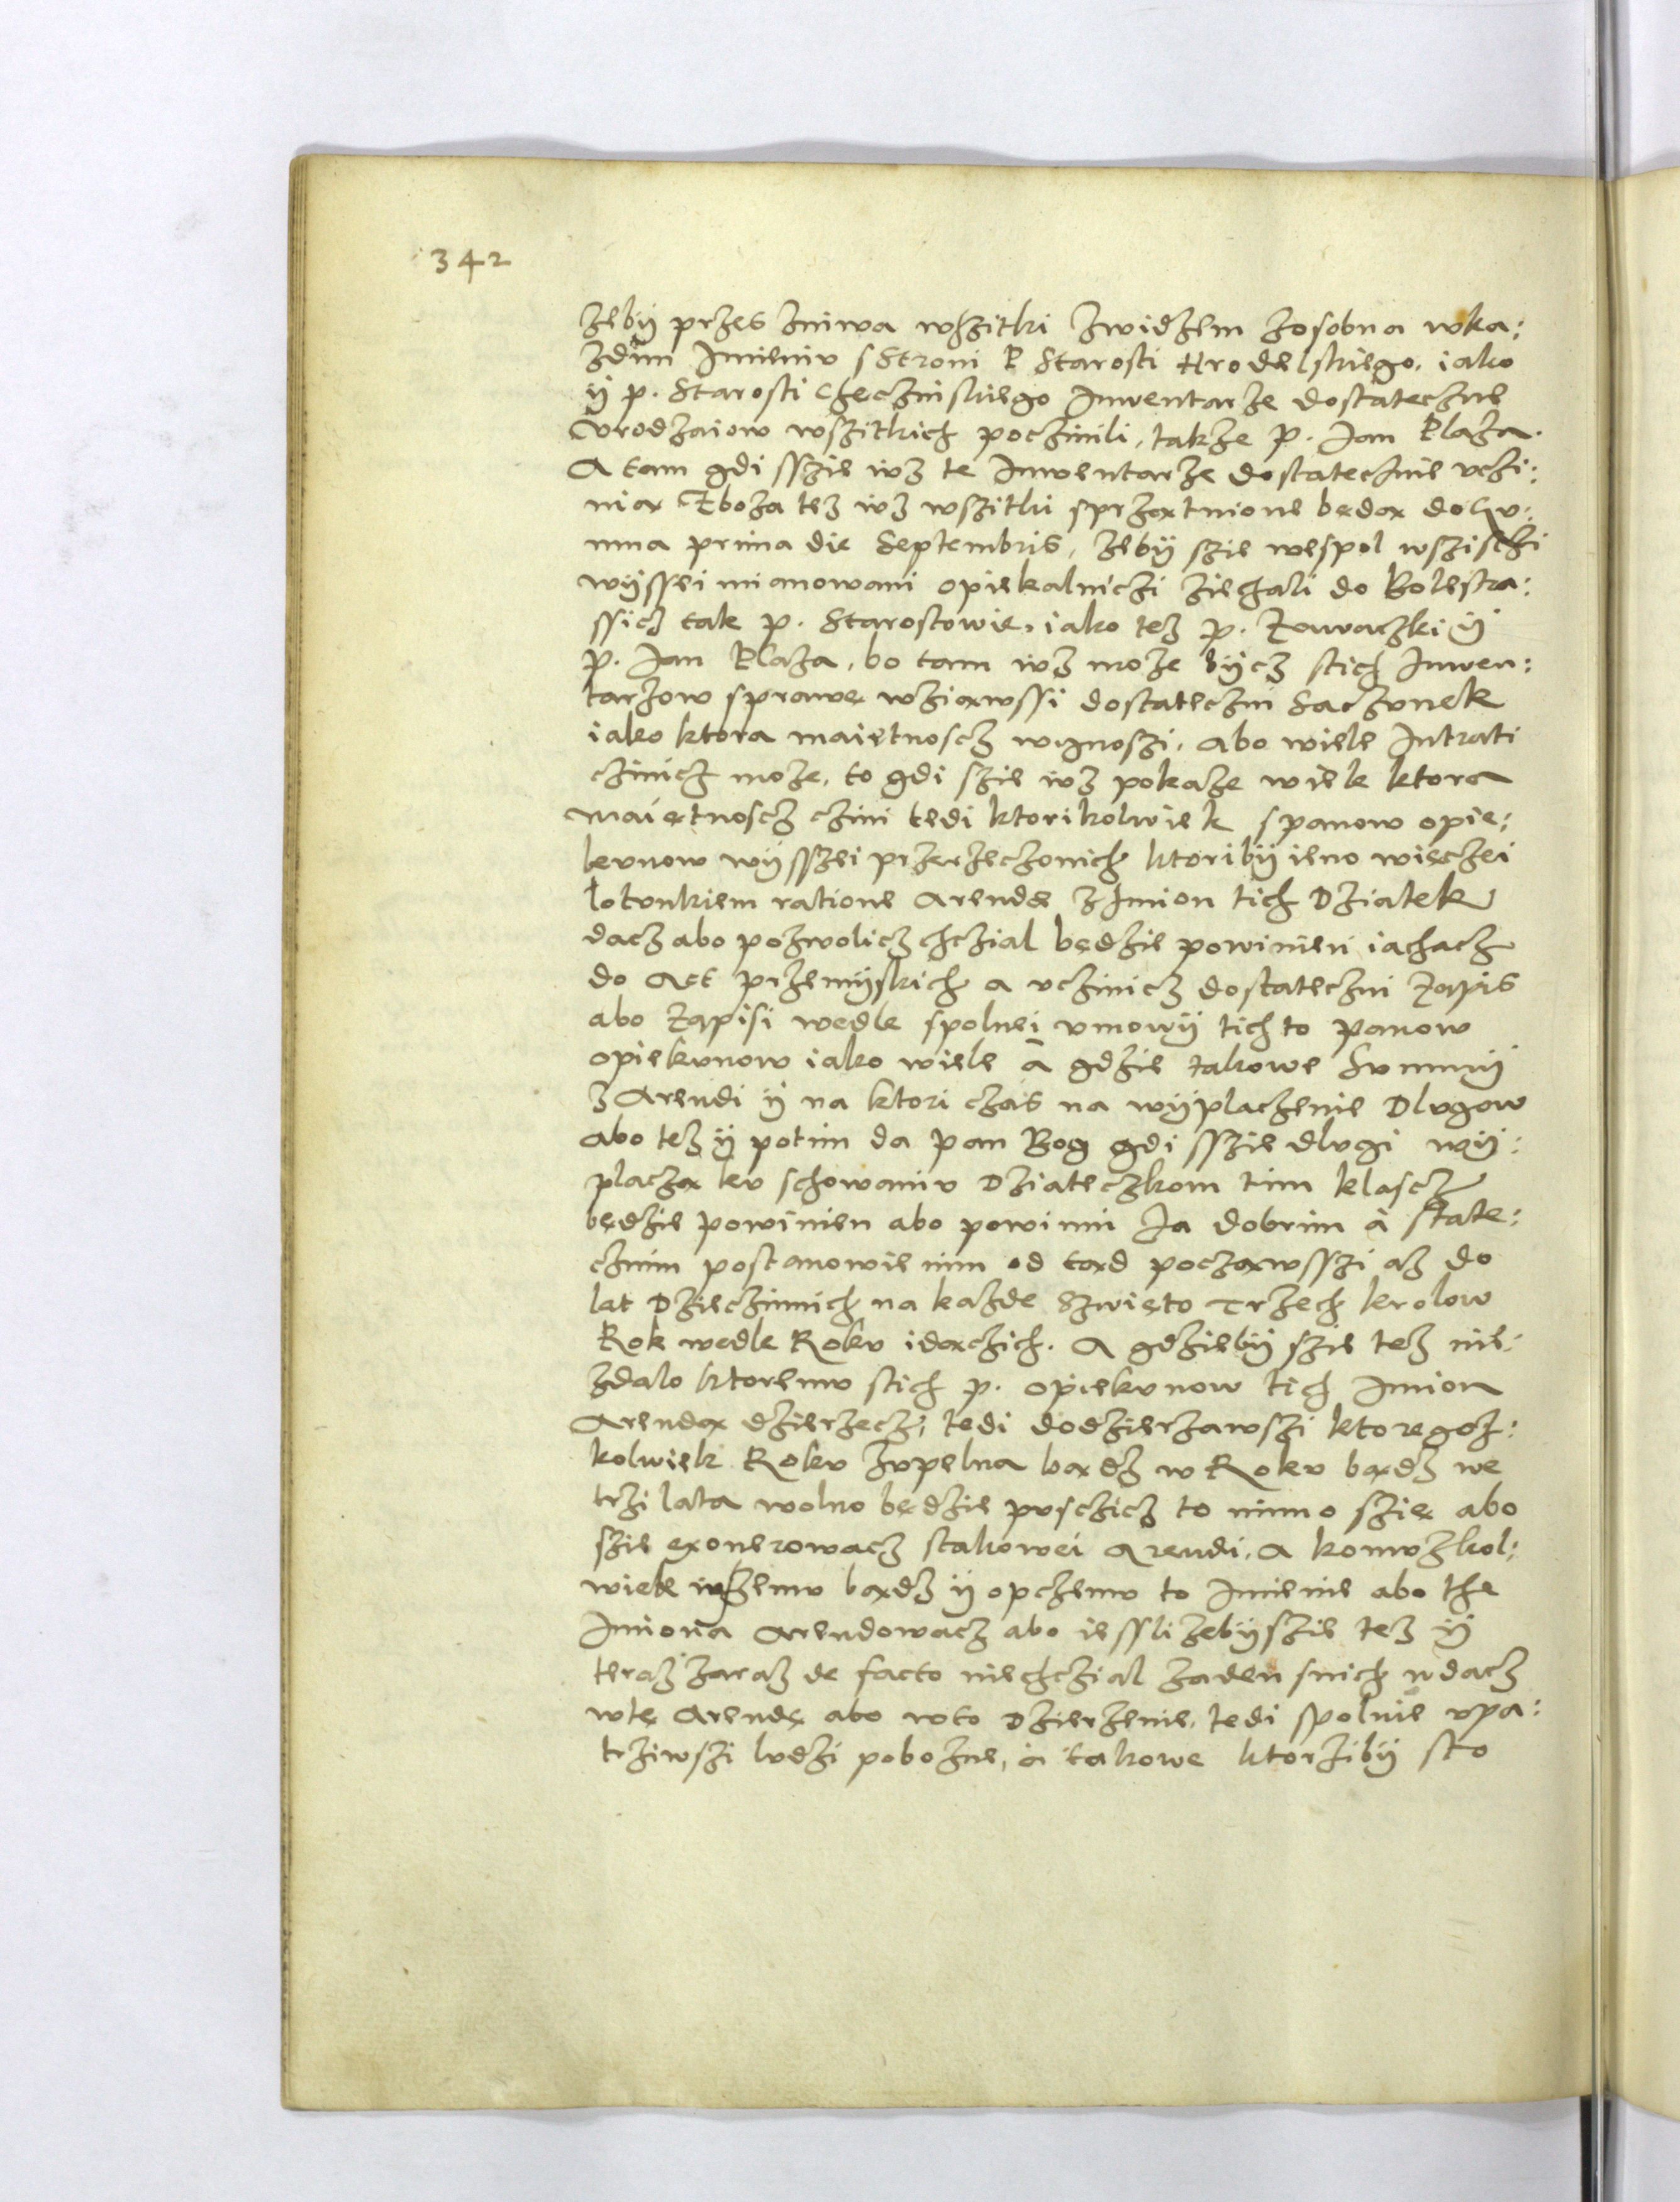 342
żebÿ przes żniwa wszitki zwidzem zosobna wka:
zdim Imieniu s Stroni P Starosti Hrodelskiego. iako
ÿ p. Starosti Chęczinskiego Inwentarze dostateczne
Vrodzaiow wszitkich poczinili, także p. Jan Płaza.
A tam gdi sszie iuz te Inwentarze dostatecznie uczi:
niax Zboza tez iuz wszitki sprzaxtnione będax do Gu:
mna prima die Septembris, żebÿ szie wespol wszisczi
wÿssei mianowani opiekalniczi ziechali do Bolestra:
ssicz tak p. Starostowie, iako tez p. Zawaczki ÿ
p. Jan Płaza, bo tam iuz moze bÿcz stich Inwen:
tarzow sprawę wziaxwssi dostateczni Saczunek
iako ktora maiętnoscz wÿnoszi. abo wiele Intrati
czinicz może, to gdi szie iuz pokaze wiele ktora
maiętnoscz czini tedi ktorikolwiek spanow opie:
kunow wÿsszei przerzeczonich ktoribÿ ieno więczei
lotunkiem ratione Arendę z Imion tich Dziatek
dacz abo pozwolicz chczial będzie powinien iachacz
do Act przemÿskich a uczinicz dostateczni Zapis
abo Zapisi wedle spolnei umowÿ tich to Panow
opiekunow iako wiele a gdzie takowe Summÿ
z Arendi ÿ na ktori czas na wÿplaczenie Dlugow
abo tez ÿ potim da Pan Bog gdi sszie dlugi wÿ:
placzax ku schowaniu Dziateczkom tim klascz
będzie powinien abo powinni Za dobrim à state:
cznim postanowienim od taxd poczaxwsszi az do
lat Dzieczinnich na kazde Szwięto Trzech krolow
Rok wedle Roku idaxczich. A gdziebÿ szie tez nie
zdalo ktoremu stich p. opiekunow tich Imion
Arendax dzierzecz, tedi dodzierzawszi ktoregoz:
kolwiek Roku Zupelna baxdz w Roku baxdz we
trzi lata wolno będzie pusczicz to mimo szię abo
szie exonerowacz stakowei Arendi. A komuzkol:
wiek iuzemu baxdz ÿ opczemu to Imienie abo the
Imiona Arendowacz abo iessli zebÿ szie tez ÿ
teraz zaraz de facto niechczial zaden snich wdacz
wtę Arendę abo wto Dzierzenie, tedi spolnie upa:
trziwszi ludzi pobozne, à takowe ktorzibÿ sto